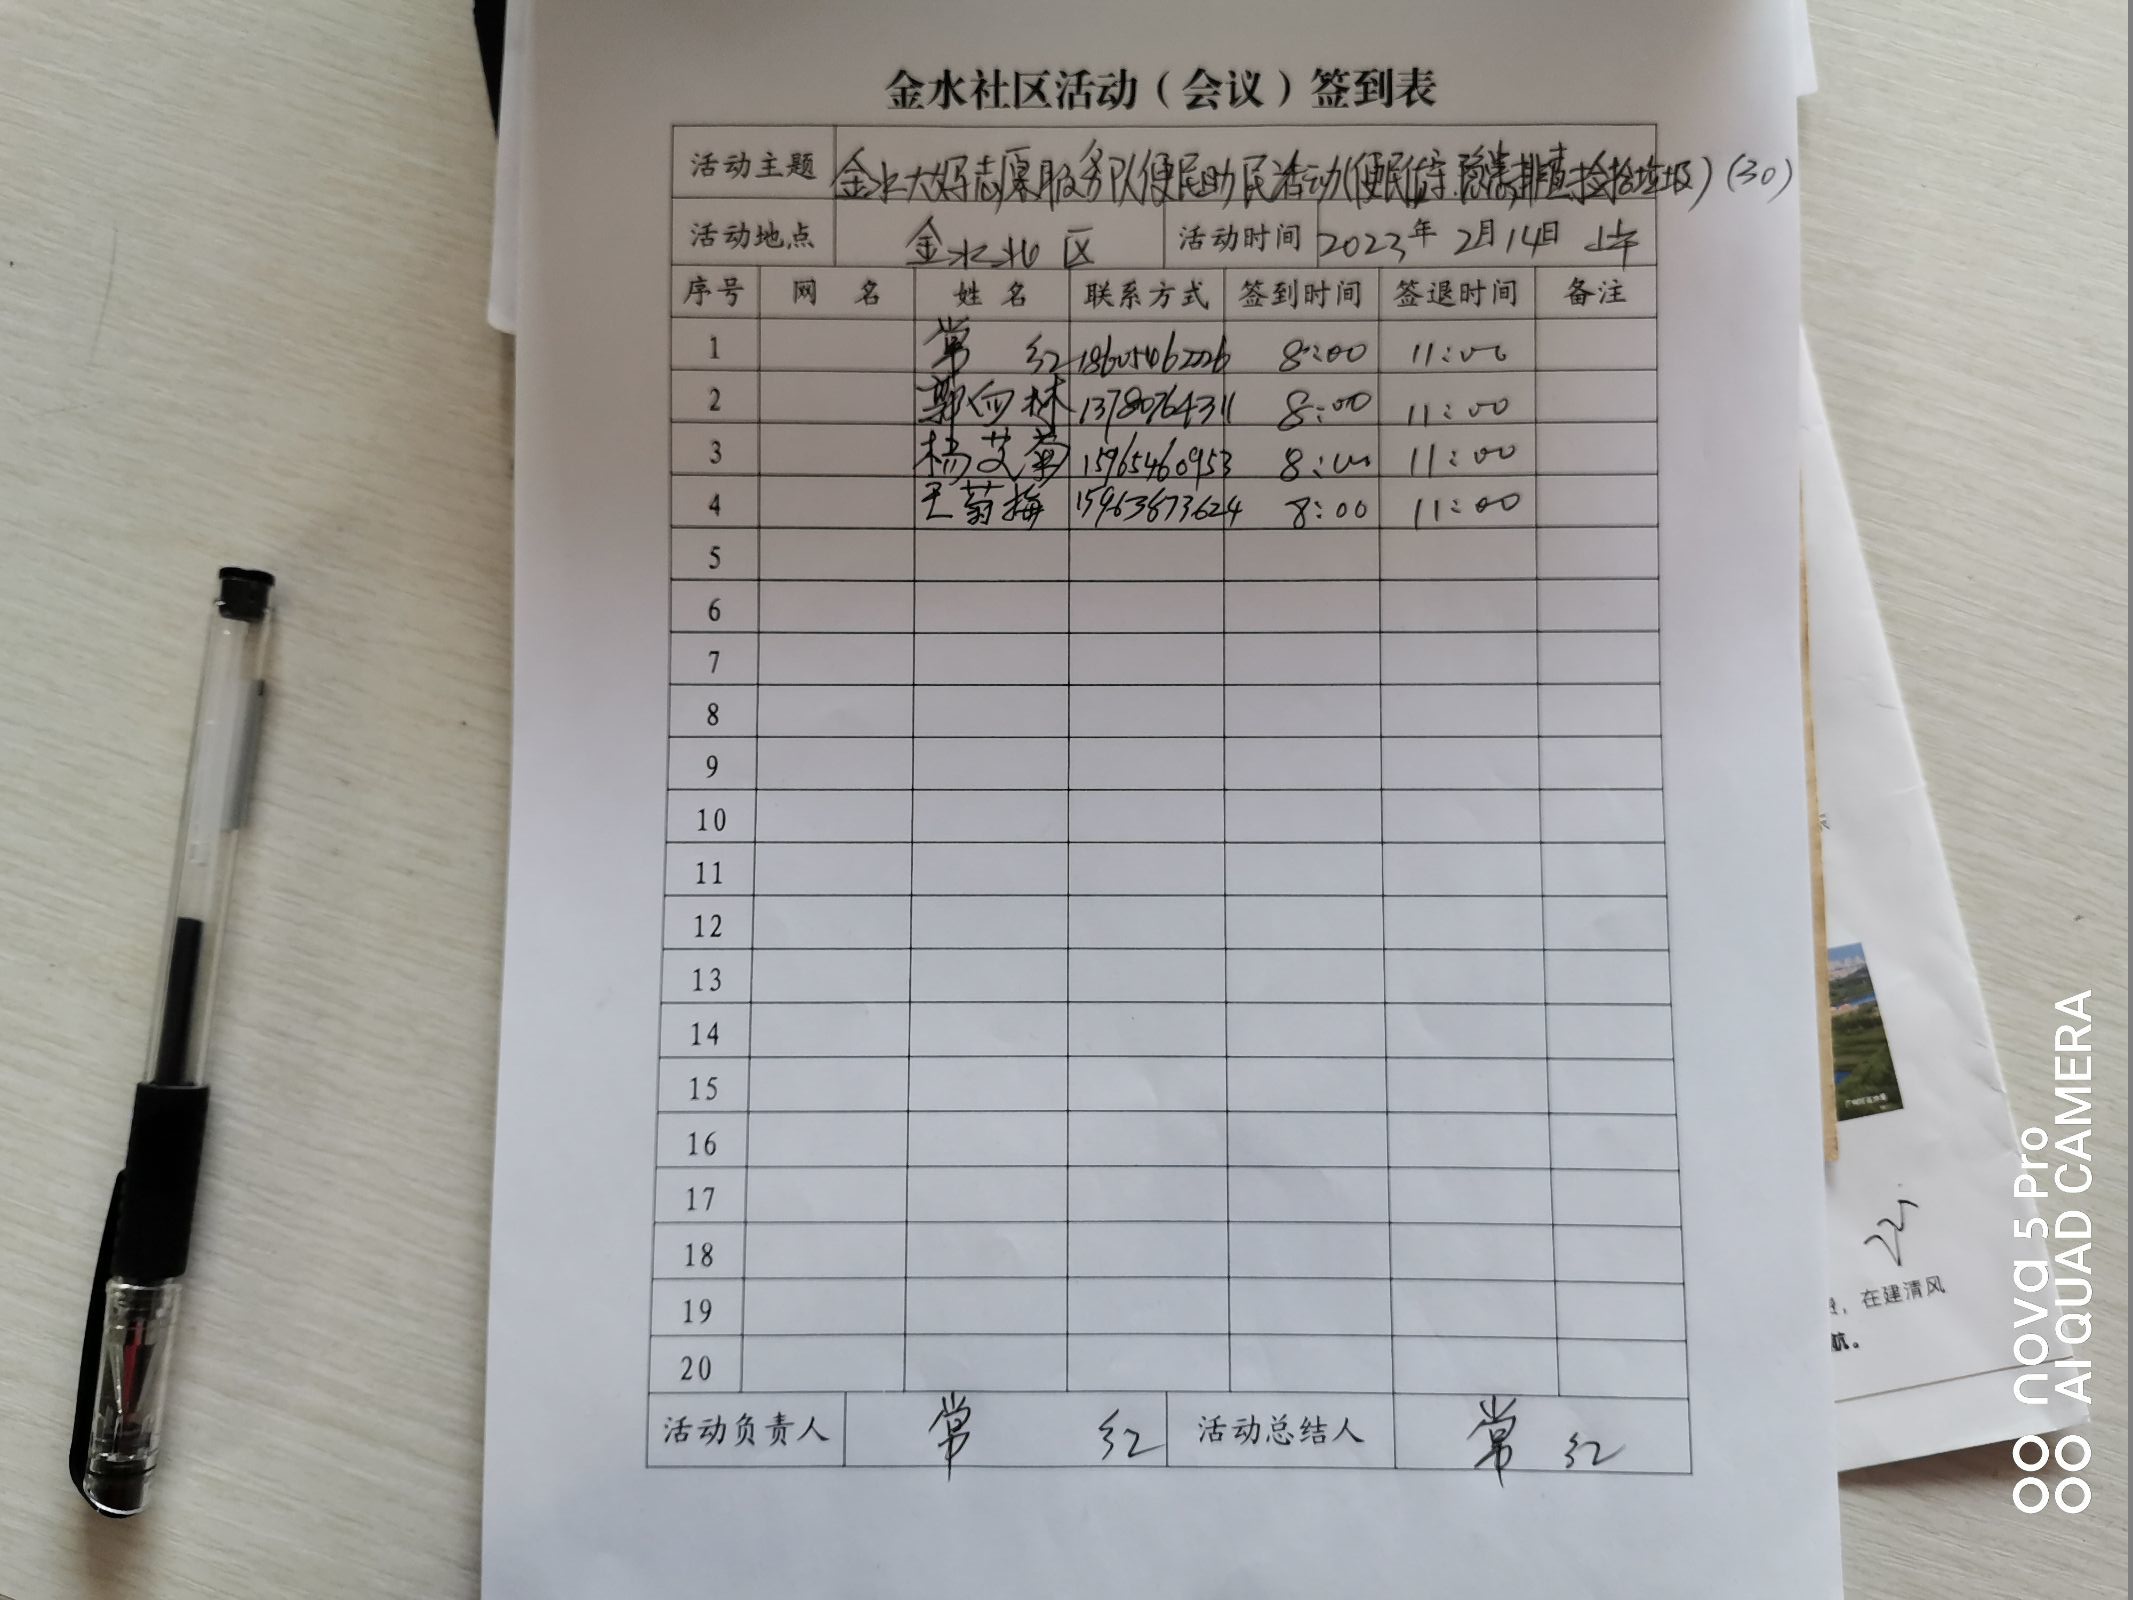 金水社区活动（会议）签到表
活动主题 金水大好志愿服务队便民助民活动(便民 隐患排查 捡拾垃圾)(30)
活动地点 金水北区 活动时间 2023年2月14日 上午
序号 网名 姓名 联系方式 签到时间 签退时间 备注
1 常红 8:00 11:00
2 郭向林 13780764311 8:00 11:00
3 杨艾菊 15965460953 8:00 11:00
4 王菊梅 15963873624 8:00 11:00
5
6
7
8
9
10
11
12
13
14
15
16
17
18
19
20
活动负责人 常红 活动总结人 常红
在建清风
航。
nova 5 Pro
AI QUAD CAMERA